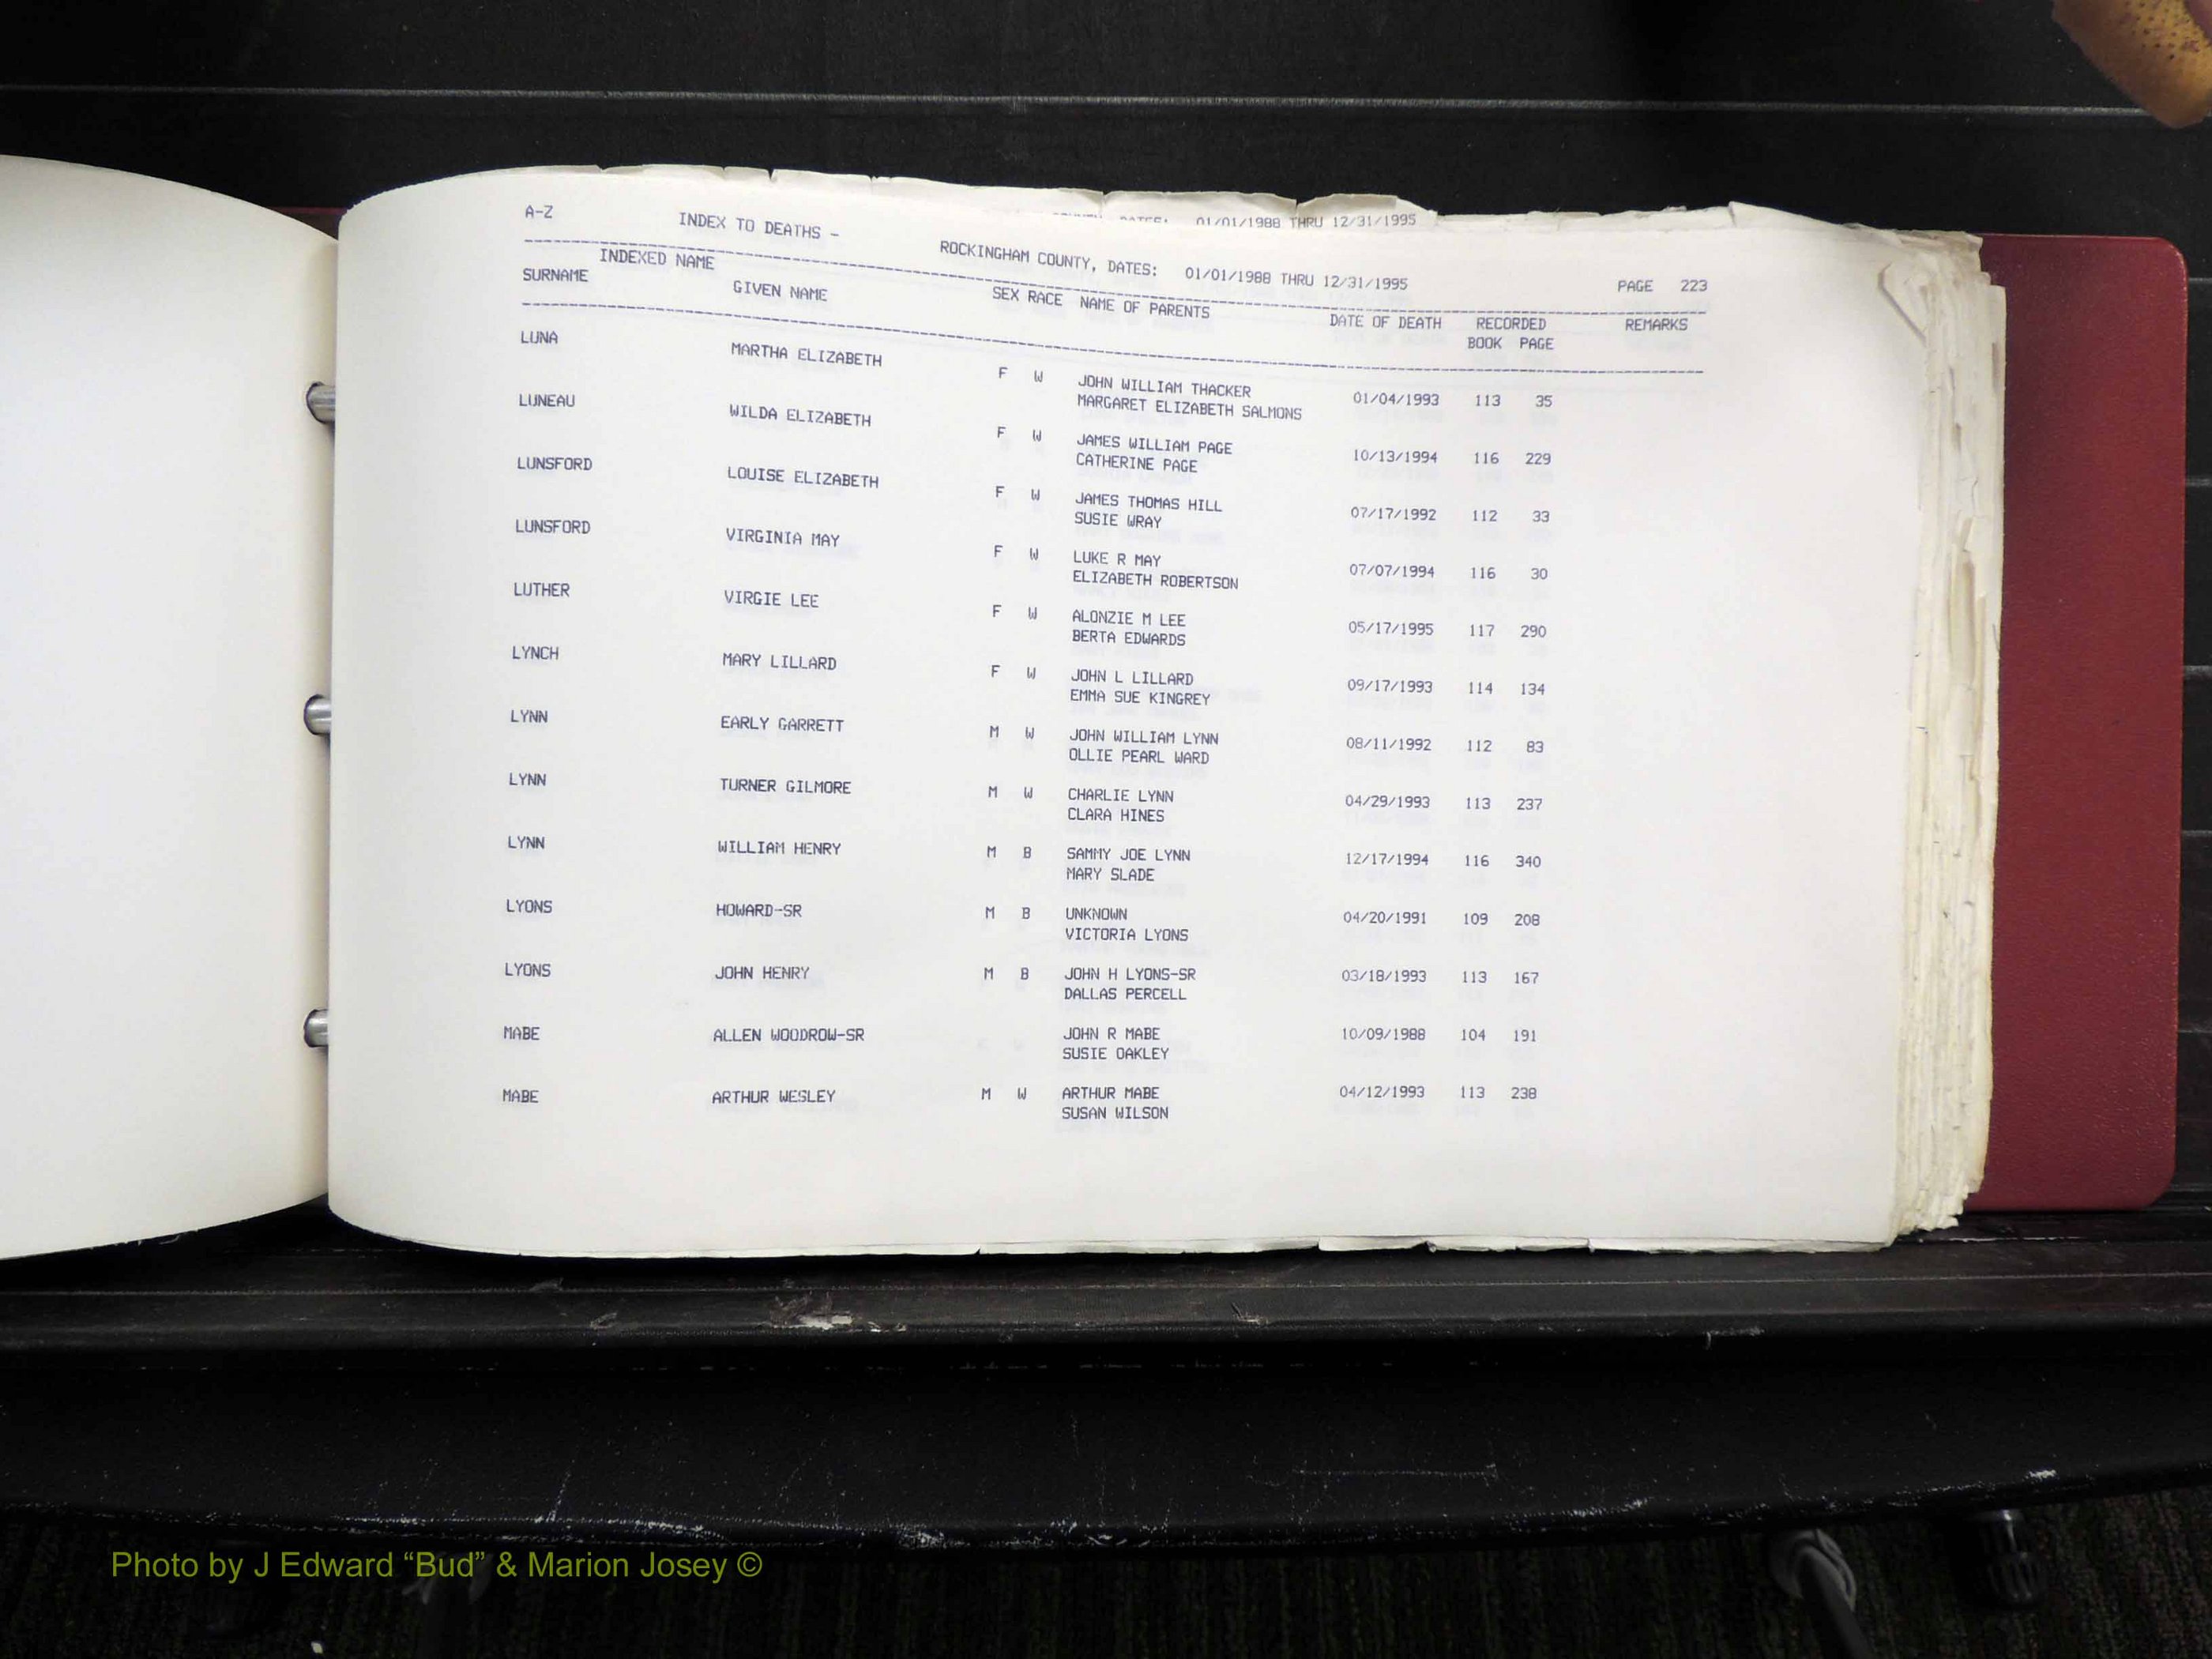 01/01/1988 THRU 12/31/1995
A-Z INDEX TO DEATHS - ROCKINGHAM COUNTY, DATES: 01/01/1988 THRU 12/31/1995 PAGE 223
INDEXED NAME
SURNAME GIVEN NAME SEX RACE NAME OF PARENTS DATE OF DEATH RECORDED REMARKS
BOOK PAGE
LUNA MARTHA ELIZABETH F W JOHN WILLIAM THACKER 01/04/1993 113 35
MARGARET ELIZABETH SALMONS
LUNEAU WILDA ELIZABETH F W JAMES WILLIAM PAGE 10/13/1994 116 229
CATHERINE PAGE
LUNSFORD LOUISE ELIZABETH F W JAMES THOMAS HILL 07/17/1992 112 33
SUSIE WRAY
LUNSFORD VIRGINIA MAY F W LUKE R MAY 07/07/1994 116 30
ELIZABETH ROBERTSON
LUTHER VIRGIE LEE F W ALONZIE M LEE 05/17/1995 117 290
BERTA EDWARDS
LYNCH MARY LILLARD F W JOHN L LILLARD 09/17/1993 114 134
EMMA SUE KINGREY
LYNN EARLY GARRETT M W JOHN WILLIAM LYNN 08/11/1992 112 83
OLLIE PEARL WARD
LYNN TURNER GILMORE M W CHARLIE LYNN 04/29/1993 113 237
CLARA HINES
LYNN WILLIAM HENRY M B SAMMY JOE LYNN 12/17/1994 116 340
MARY SLADE
LYONS HOWARD-SR M B UNKNOWN 04/20/1991 109 208
VICTORIA LYONS
LYONS JOHN HENRY M B JOHN H LYONS-SR 03/18/1993 113 167
DALLAS PERCELL
MABE ALLEN WOODROW-SR JOHN R MABE 10/09/1988 104 191
SUSIE OAKLEY
MABE ARTHUR WESLEY M W ARTHUR MABE 04/12/1993 113 238
SUSAN WILSON
Photo by J Edward “Bud” & Marion Josey ©